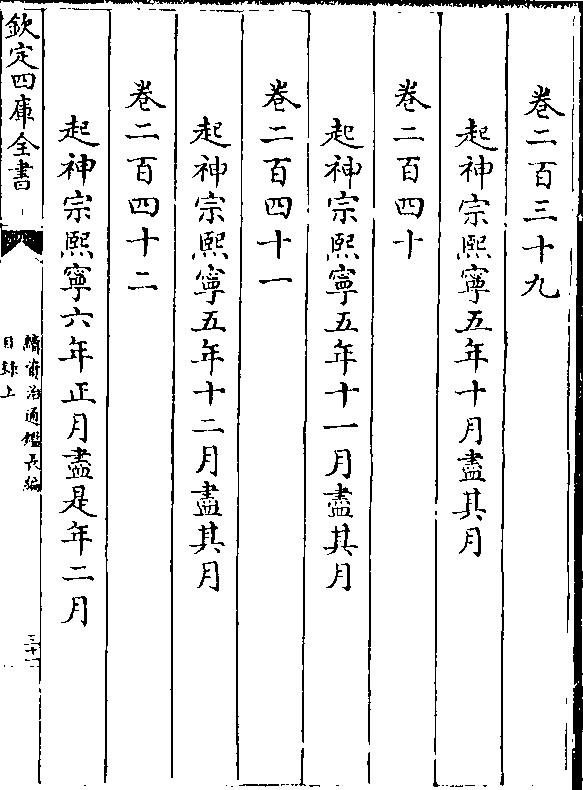 卷二百三十九
起神宗熙寧五年十月盡其月
卷二百四十
起神宗熙寧五年十一月盡其月
卷二百四十一
起神宗熙寧五年十二月盡其月
卷二百四十二
起神宗熙寧六年正月盡是年二月
欽定四庫全書
續資治通鑑長編
目錄上
三十一